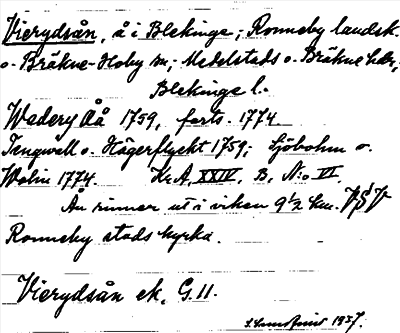 Vierydsån, å i Blekinge; Ronneby landsk.
o. Bräkne-Hoby sn; Medelstads o. Bräkne hdr,
Blekinge l.
Wadery Aå 1759, forts. 1774
Tengwall o. Hägerflycht 1759; Sjöbohm o.
Wolin 1774. Kr.A, XXIV, B, N:o VI.
Ån rinner ut i viken 9½ km. VSV
Ronneby stads kyrka.
Vierydsån ek. G.11.
1937.